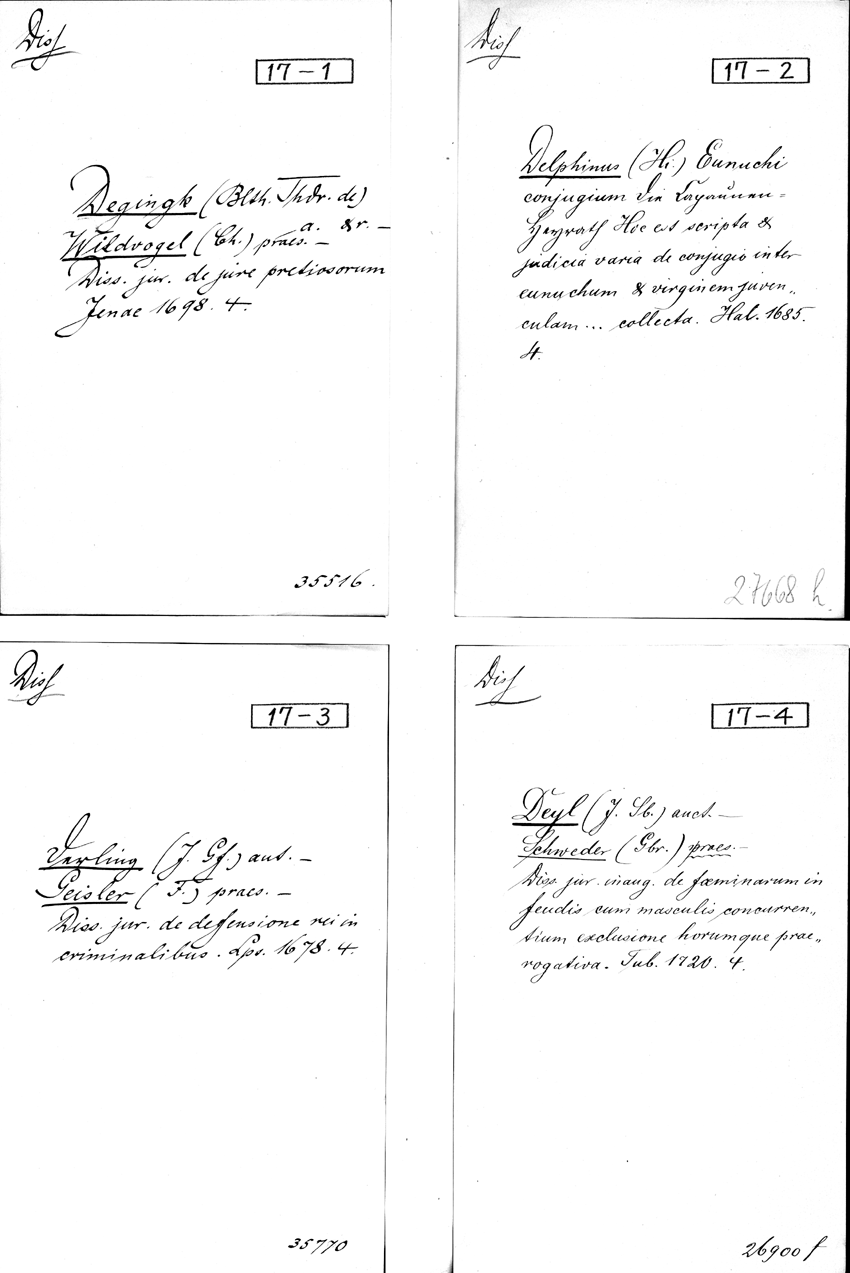 Diss
17-1
Degingk (Blth. Thdr. de)
a. & r. —
Wildvogel (Ch.) praes. —
Diss. jur. de jure pretiosorum
Jenae 1698. 4.
35516.
Diss
17-2
Delphinus (Hi.) Eunuchi
conjugium Die Capaunen=
Heyrath Hoc est scripta &
judicia varia de conjugio inter
eunuchum & virginem juven„
culam ... collecta. Hal. 1685.
4.
27668 h.
Diss
17-3
Derling (J. Gf.) aut. —
Geisler (F.) praes. —
Diss. jur. de defensione rei in
criminalibus. Lps. 1678. 4.
35770
Diss
17-4
Deyl (J. Sb.) auct. —
Schweder (Gbr.) praes. —
Diss. jur. inaug. de fæminarum in
feudis cum masculis concurren„
tium exclusione horumque prae„
rogativa. Tub. 1720. 4.
26900 f